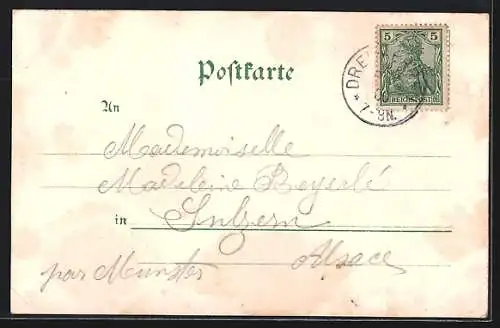 5 5
REICHSPOST
* DRE
7-8N.
Postkarte
An
Mademoiselle
Madeleine Beyerlé
in Sulzern
Alsace
par Munster